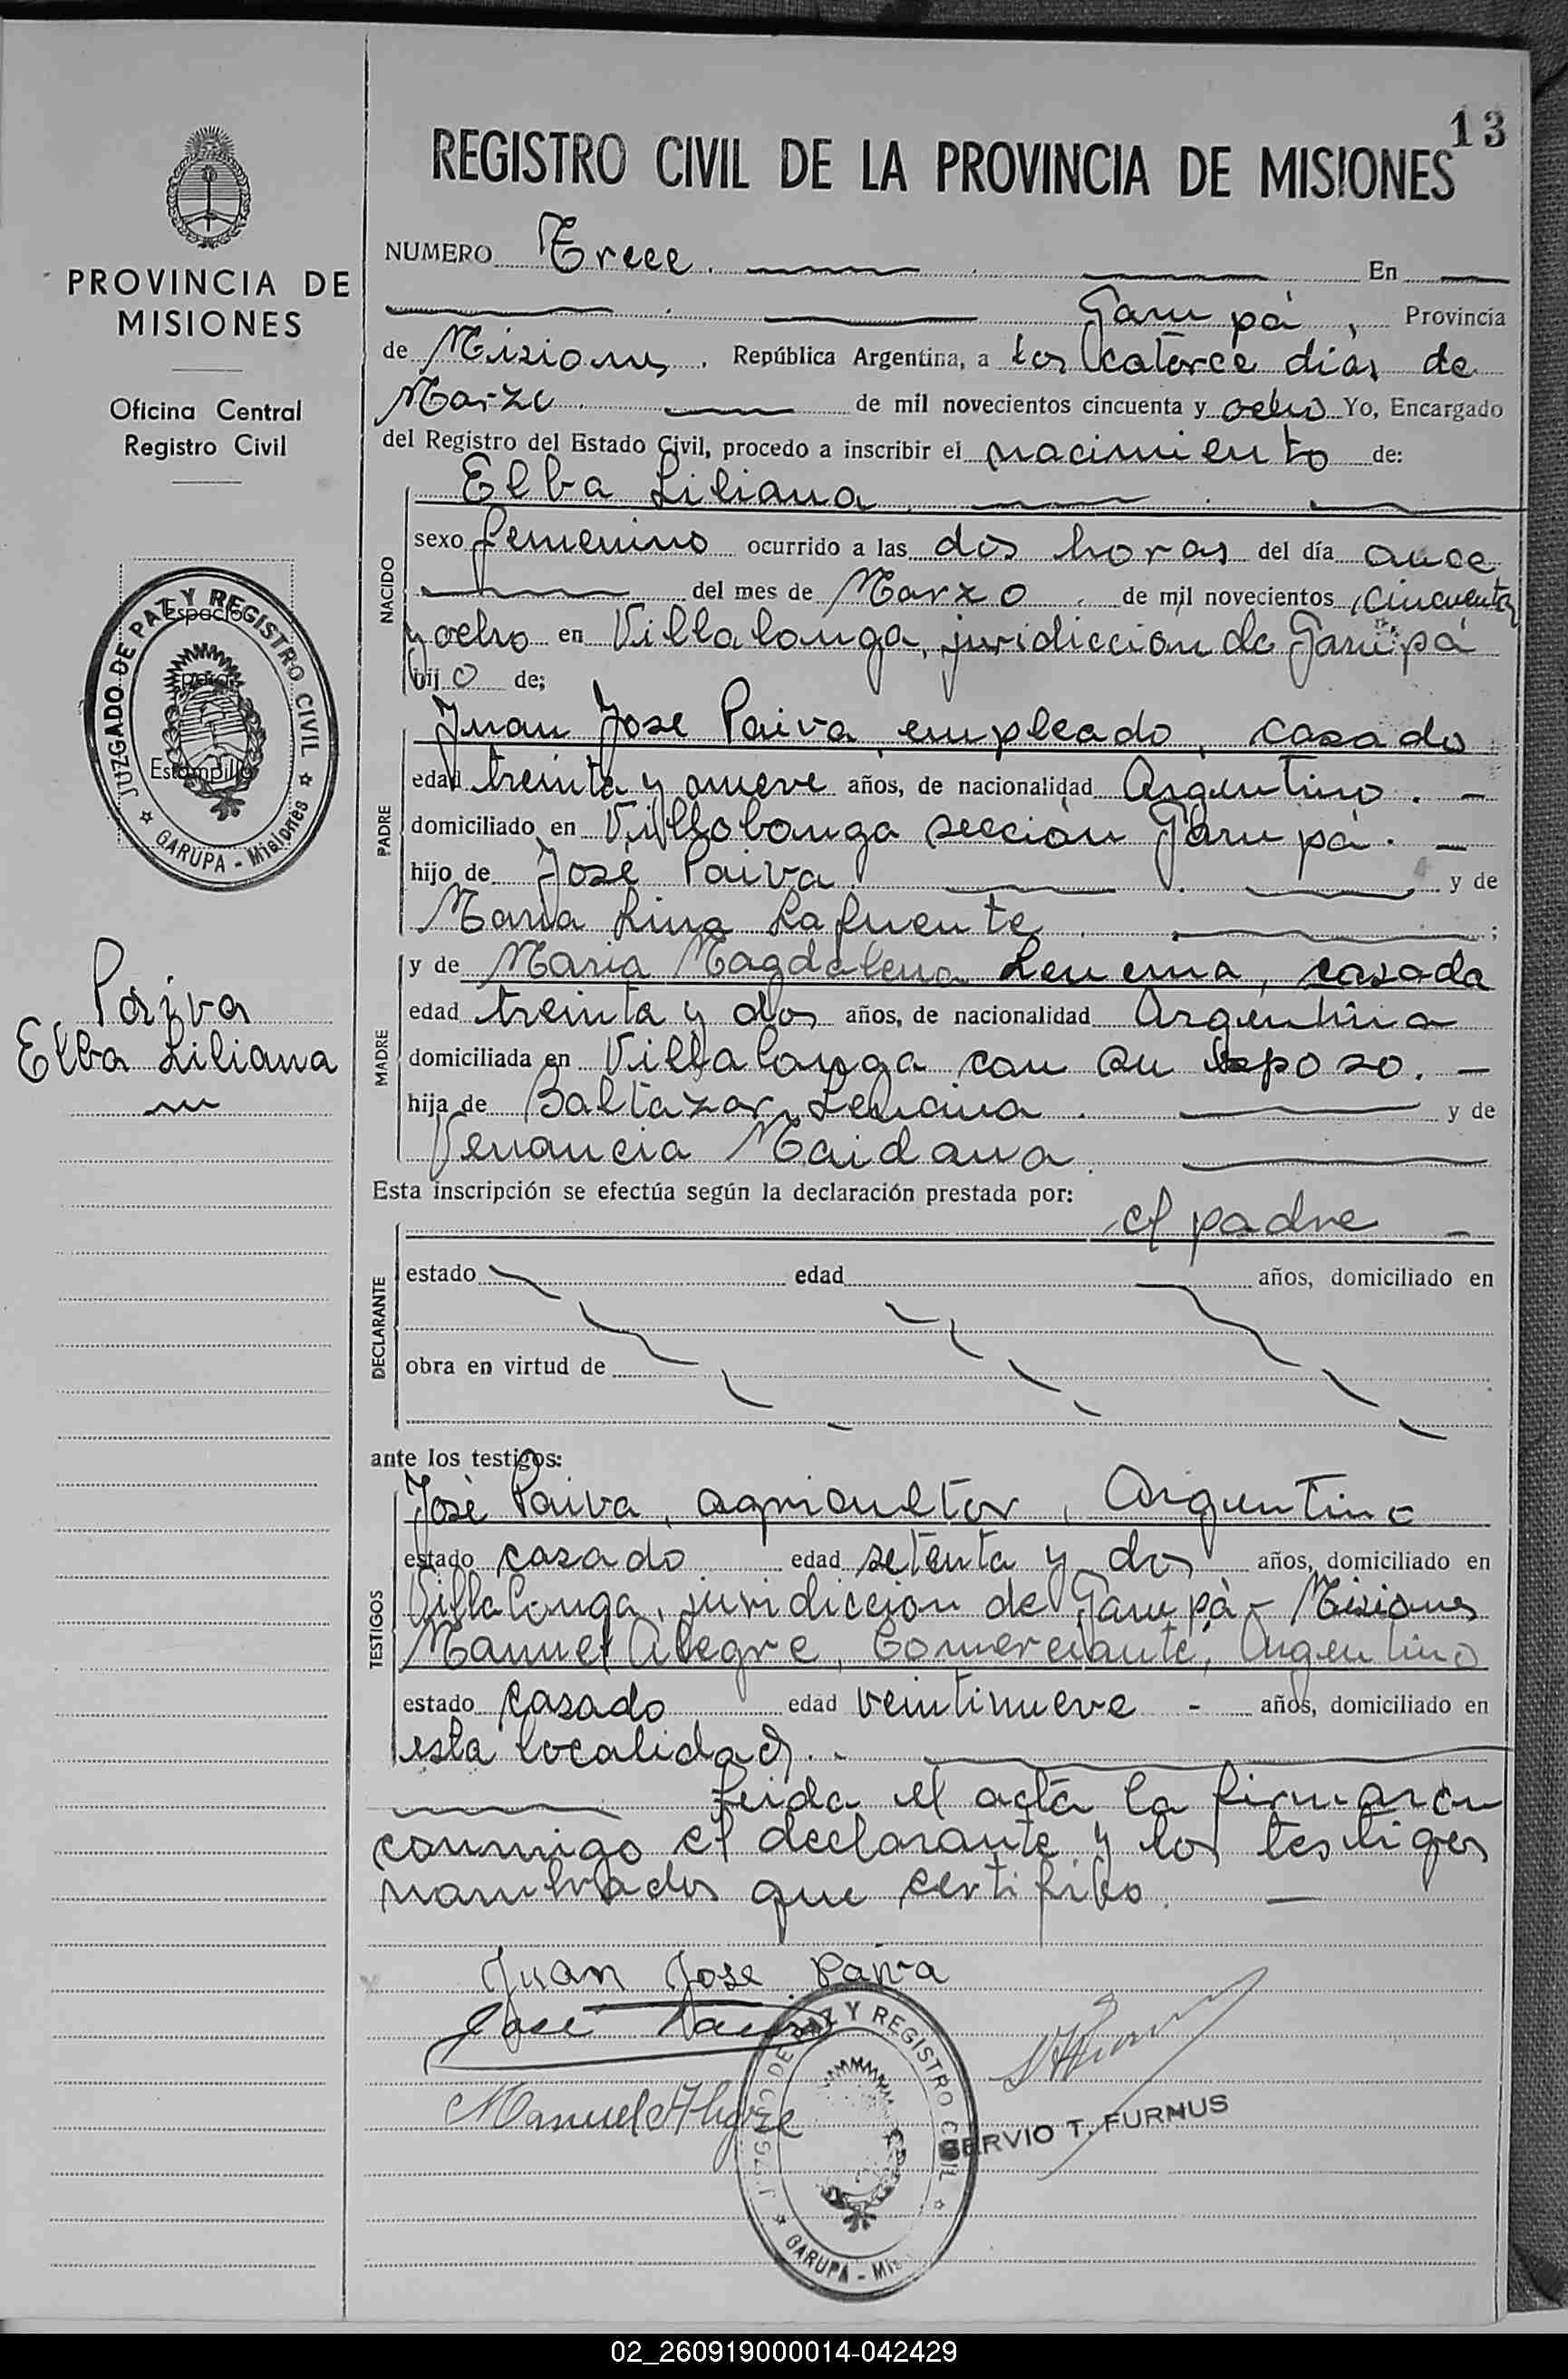 13
REGISTRO CIVIL DE LA PROVINCIA DE MISIONES
PROVINCIA DE
MISIONES
Oficina Central
Registro Civil
JUZGADO DE PAZ Y REGISTRO CIVIL
GARUPA - Misiones
Espacio
para
Estampilla
Paiva
Elba Liliana
NUMERO Trece. En
Garupá, Provincia
de Misiones. República Argentina, a los catorce dias de
Marzo. de mil novecientos cincuenta y ocho Yo, Encargado
del Registro del Estado Civil, procedo a inscribir el nacimiento de:
NACIDO
Elba Liliana.
sexo femenino ocurrido a las dos horas del día once
del mes de Marzo de mil novecientos cincuenta
y ocho en Villalonga, juridiccion de Garupá
hijo de;
PADRE
Juan Jose Paiva, empleado, casado
edad treinta y nueve años, de nacionalidad Argentino. -
domiciliado en Villalonga sección Garupá. -
hijo de José Paiva. y de
Maria Lina Lafuente. ;
MADRE
y de Maria Magdalena Lencina, casada
edad treinta y dos años, de nacionalidad Argentina
domiciliada en Villalonga con su esposo. -
hija de Baltazar Lencina. y de
Venancia Maidana.
Esta inscripción se efectúa según la declaración prestada por:
DECLARANTE
el padre -
estado edad años, domiciliado en
obra en virtud de
ante los testigos:
TESTIGOS
José Paiva, agricultor, Argentino
estado casado edad setenta y dos años, domiciliado en
Villalonga, juridiccion de Garupá - Misiones
Manuel Alegre, Comerciante, Argentino
estado casado edad veintinueve - años, domiciliado en
esta localidad. -
Leida el acta la firmaron
conmigo el declarante y los testigos
nombrados que certifico. -
Juan Jose Paiva
José Paiva
Manuel Alegre
JUZGADO DE PAZ Y REGISTRO CIVIL
GARUPA - Mis
SERVIO T. FURNUS
02_260919000014-042429